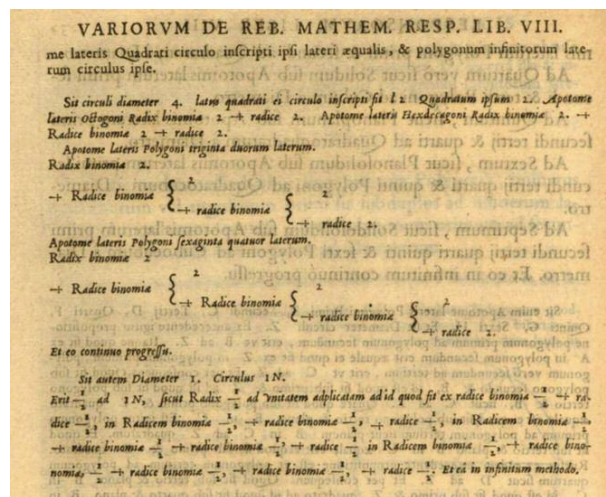 VARIORVM DE REB. MATHEM. RESP. LIB. VIII.
me lateris Quadrati circulo inscripti ipsi lateri æqualis, & polygonum infinitorum late-
rum circulus ipse.
Sit circuli diameter 4. latus quadrati ei circulo inscripti fit l 2 Quadratum ipsum 2. Apotome
lateris Octogoni Radix binomiæ 2 + radice 2. Apotome lateris Hexdecagoni Radix binomiæ 2. +
Radice binomiæ 2 + radice 2.
Apotome lateris Polygoni triginta duorum laterum.
Radix binomiæ 2.
+ Radice binomiæ { 2
+ radice binomiæ { 2
+ radice 2.
Apotome lateris Polygoni sexaginta quatuor laterum.
Radix binomiæ 2
+ Radice binomiæ { 2
+ Radice binomiæ { 2
+ radice binomiæ { 2
+ radice 2.
Et eo continuo progressu.
Sit autem Diameter 1. Circulus 1N.
Erit 1/2 ad 1N, sicut Radix 1/2 ad vnitatem adplicatam ad id quod fit ex radice binomiæ 1/2 + ra-
dice 1/2, in Radicem binomiæ 1/2, + radice binomiæ 1/2, + radice 1/2, in Radicem binomiæ 1/2,
+ radice binomiæ 1/2 + radice binomiæ 1/2, + radice 1/2 in Radicem binomiæ 1/2, + radice bino-
nomiæ 1/2 + radice binomiæ 1/2, + radice binomiæ 1/2, + radice 1/2. Et eâ in infinitum methodo.